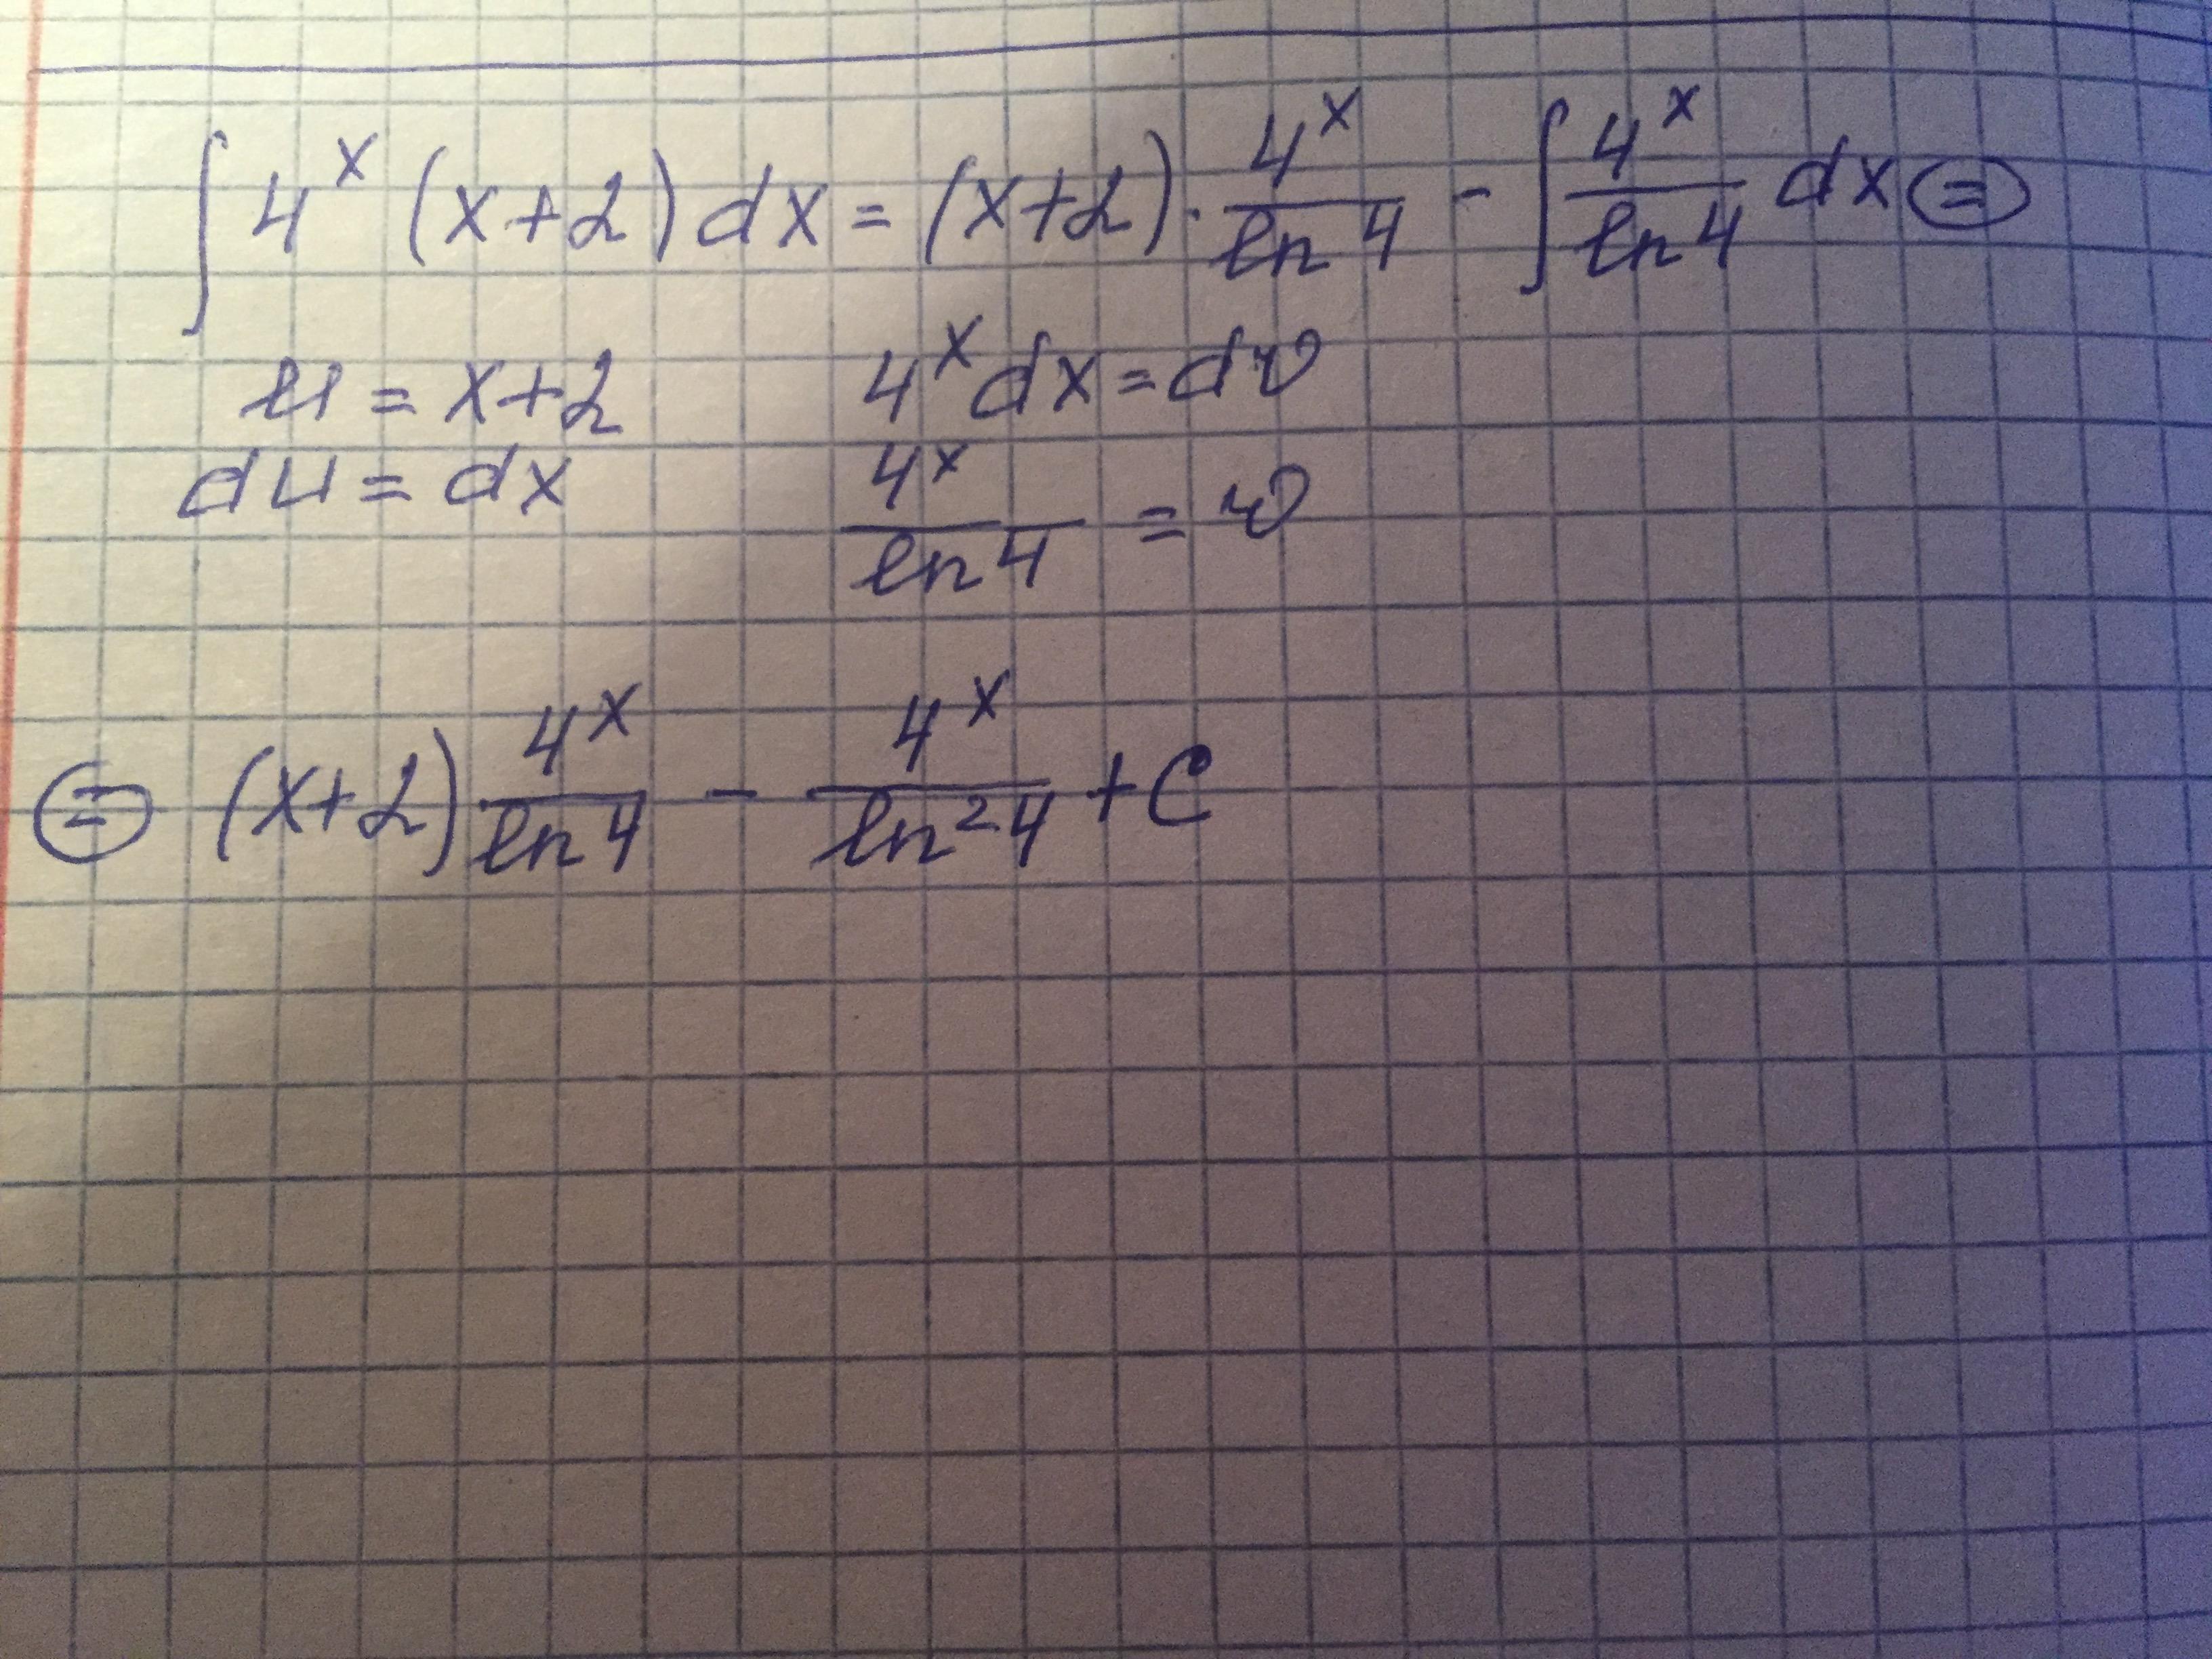 ∫ 4^x (x+2) dx = (x+2) · 4^x / ln 4 - ∫ 4^x / ln 4 dx ⊜
u = x+2    4^x dx = dv
du = dx    4^x / ln 4 = v
⊜ (x+2) 4^x / ln 4 - 4^x / ln² 4 + C